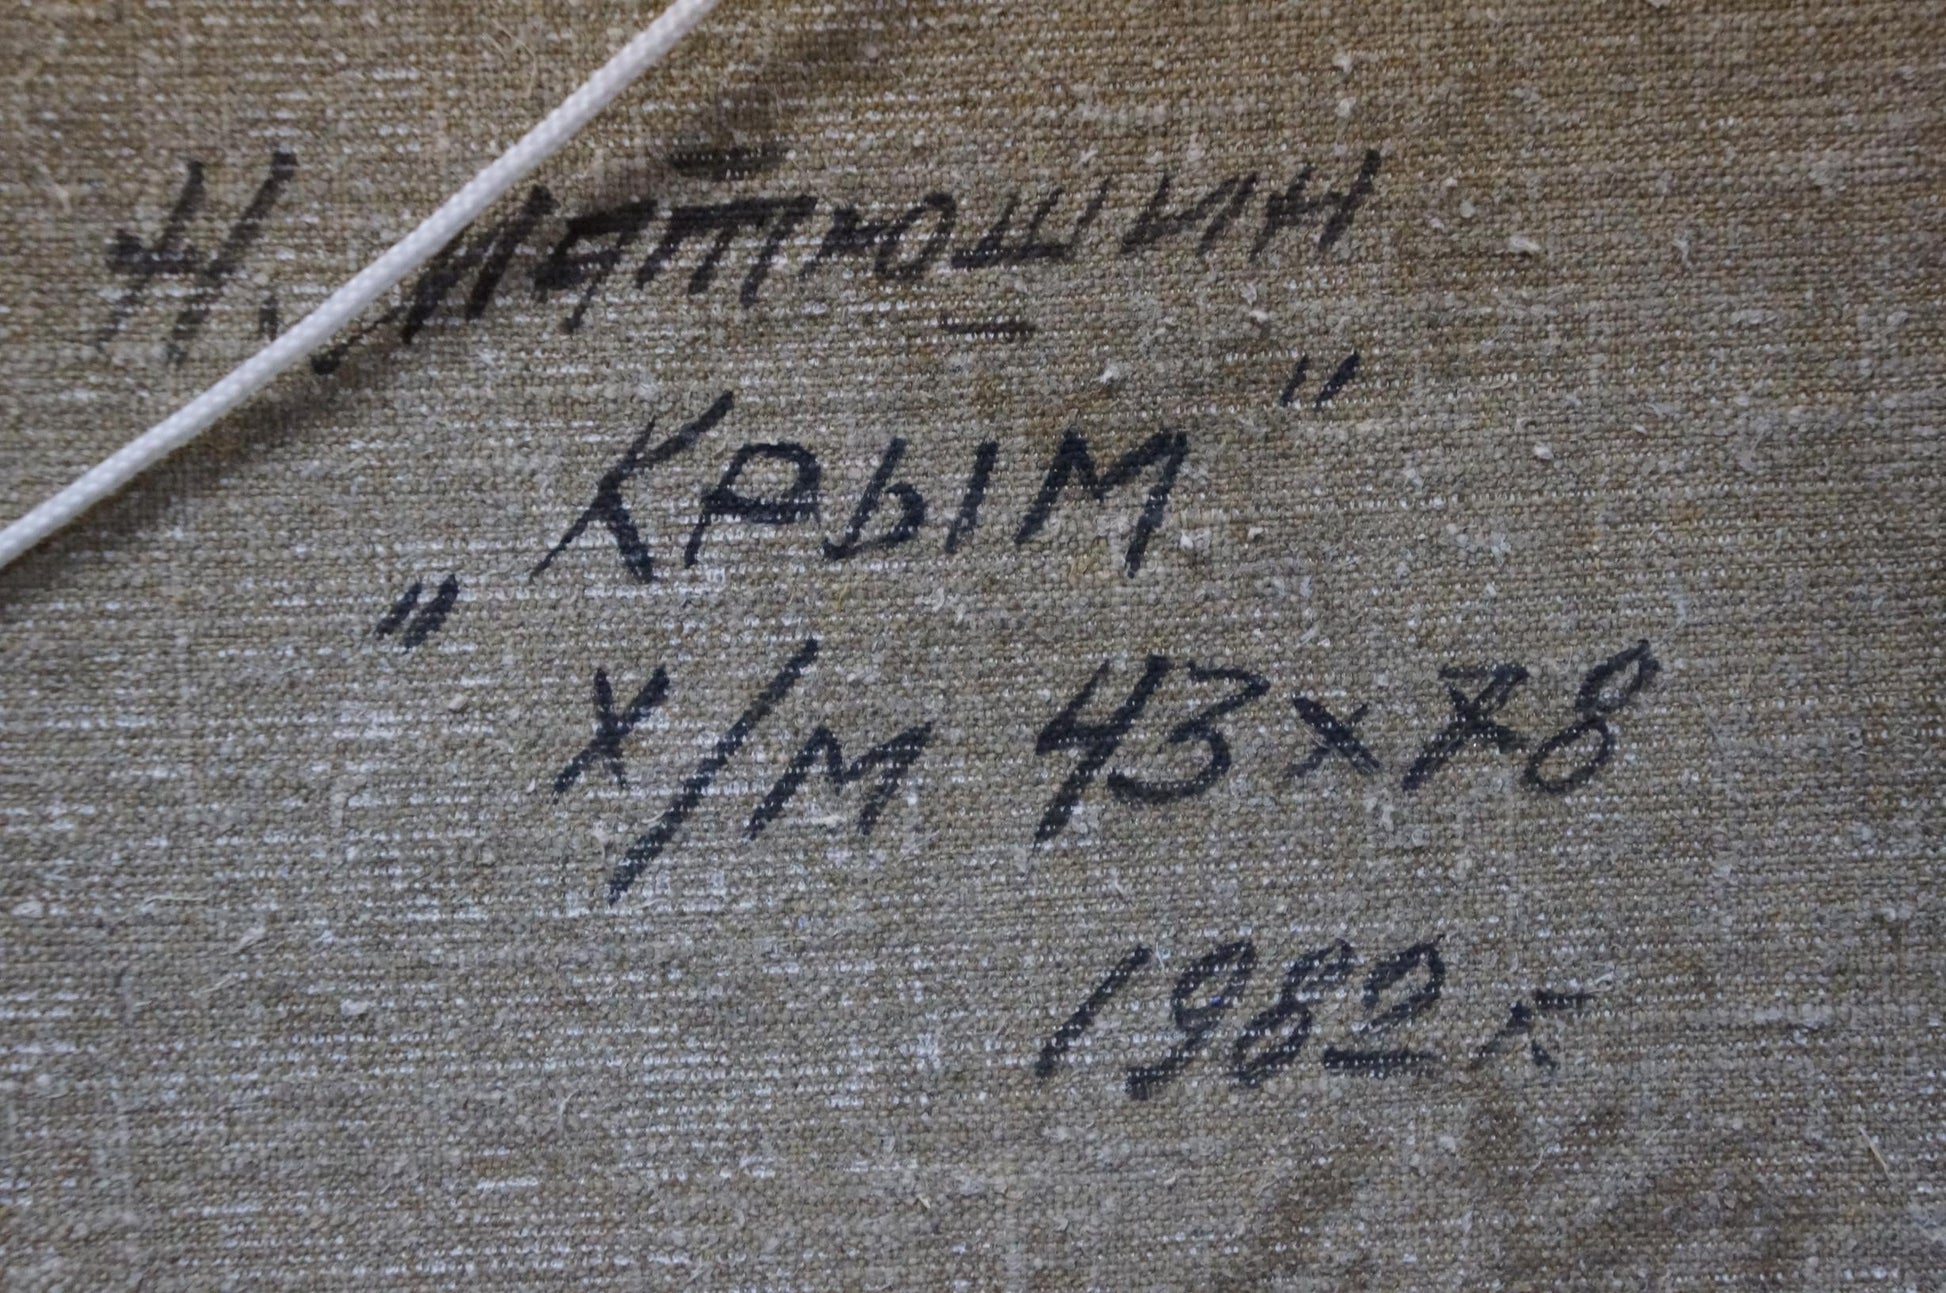 Н. Матюшин
„Крым"
х/м 43x78
1982 г